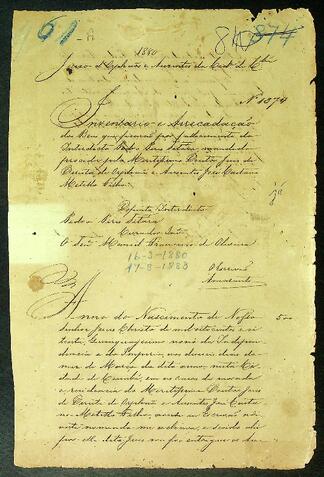 61-A
840 874
1880
Juizo d'Orphãos e Ausentes da Cid. de C.bá
Nº 1374
Inventario e Arrecadação
dos Bens que ficarão por fallecimento do
Interdicto Pedro Pires Setára, mandado
proceder pelo Meritissimo Doutor Juiz de
Direito de Orphãos e Ausentes José Caetano
Metello Filho.
Defunto Interdicto
Pedro Pires Setára
Curador
O Ten.e Manoel Francisco de Oliveira
16-3-1880
17-8-1888
O Escrivão
Anno do Nascimento de Nosso
Senhor Jesus Christo de mil oito centos e oi
tenta, quinquagesimo nono da Indepen
dencia e do Imperio, aos desaseis dias do
mez de Março do dito anno, nesta Ci
dade de Cuiabá, em as casas de morada
e residencia do Meritissimo Doutor Juiz
de Direito de Orphãos e Ausentes José Caeta
no Metello Filho, aonde eu Escrivão
nomeado me achava, e sendo ahi
por elle dito Juiz me foi entregue